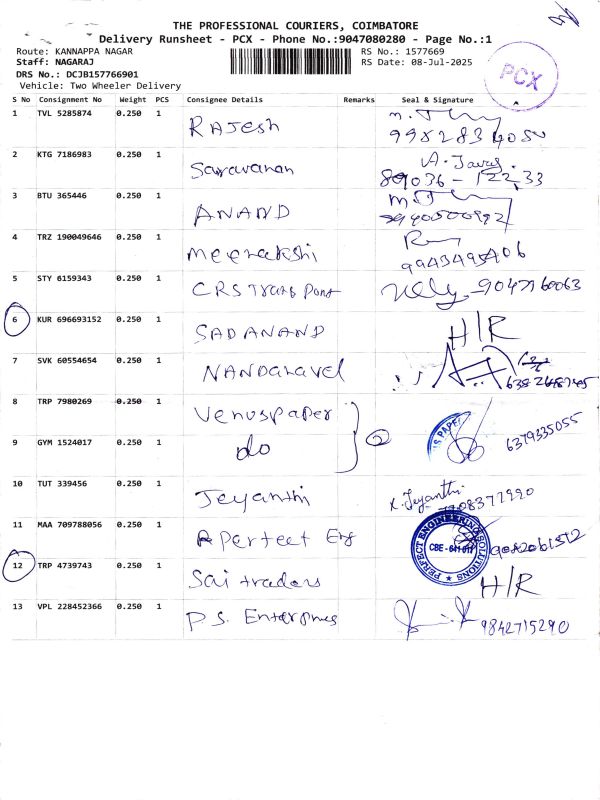 THE PROFESSIONAL COURIERS, COIMBATORE
Delivery Runsheet - PCX - Phone No.:9047080280 - Page No.:1
Route: KANNAPPA NAGAR
RS No.: 1577669
Staff: NAGARAJ
RS Date: 08-Jul-2025
DRS No.: DCJB157766901
Vehicle: Two Wheeler Delivery
PCX
S No Consignment No Weight PCS Consignee Details Remarks Seal & Signature
1 TVL 5285874 0.250 1 RAJesh
2 KTG 7186983 0.250 1 Saravanan
3 BTU 365446 0.250 1 ANAND
4 TRZ 190049646 0.250 1 meenakshi
5 STY 6159343 0.250 1 CRS Trans Port 9047160063
6 KUR 696693152 0.250 1 SADANAND H/R
7 SVK 60554654 0.250 1 NANDAravel
8 TRP 7980269 0.250 1 Venuspaper
9 GYM 1524017 0.250 1 do 2 6379335055
10 TUT 339456 0.250 1 Jeyanthi K. Jeyanthi
11 MAA 709788056 0.250 1 Perfect Eng 9082061512
PERFECT ENGINEERING SOLUTIONS
CBE - 641 011
12 TRP 4739743 0.250 1 Sai traders H/R
13 VPL 228452366 0.250 1 P.S. Enterprises 9842715290